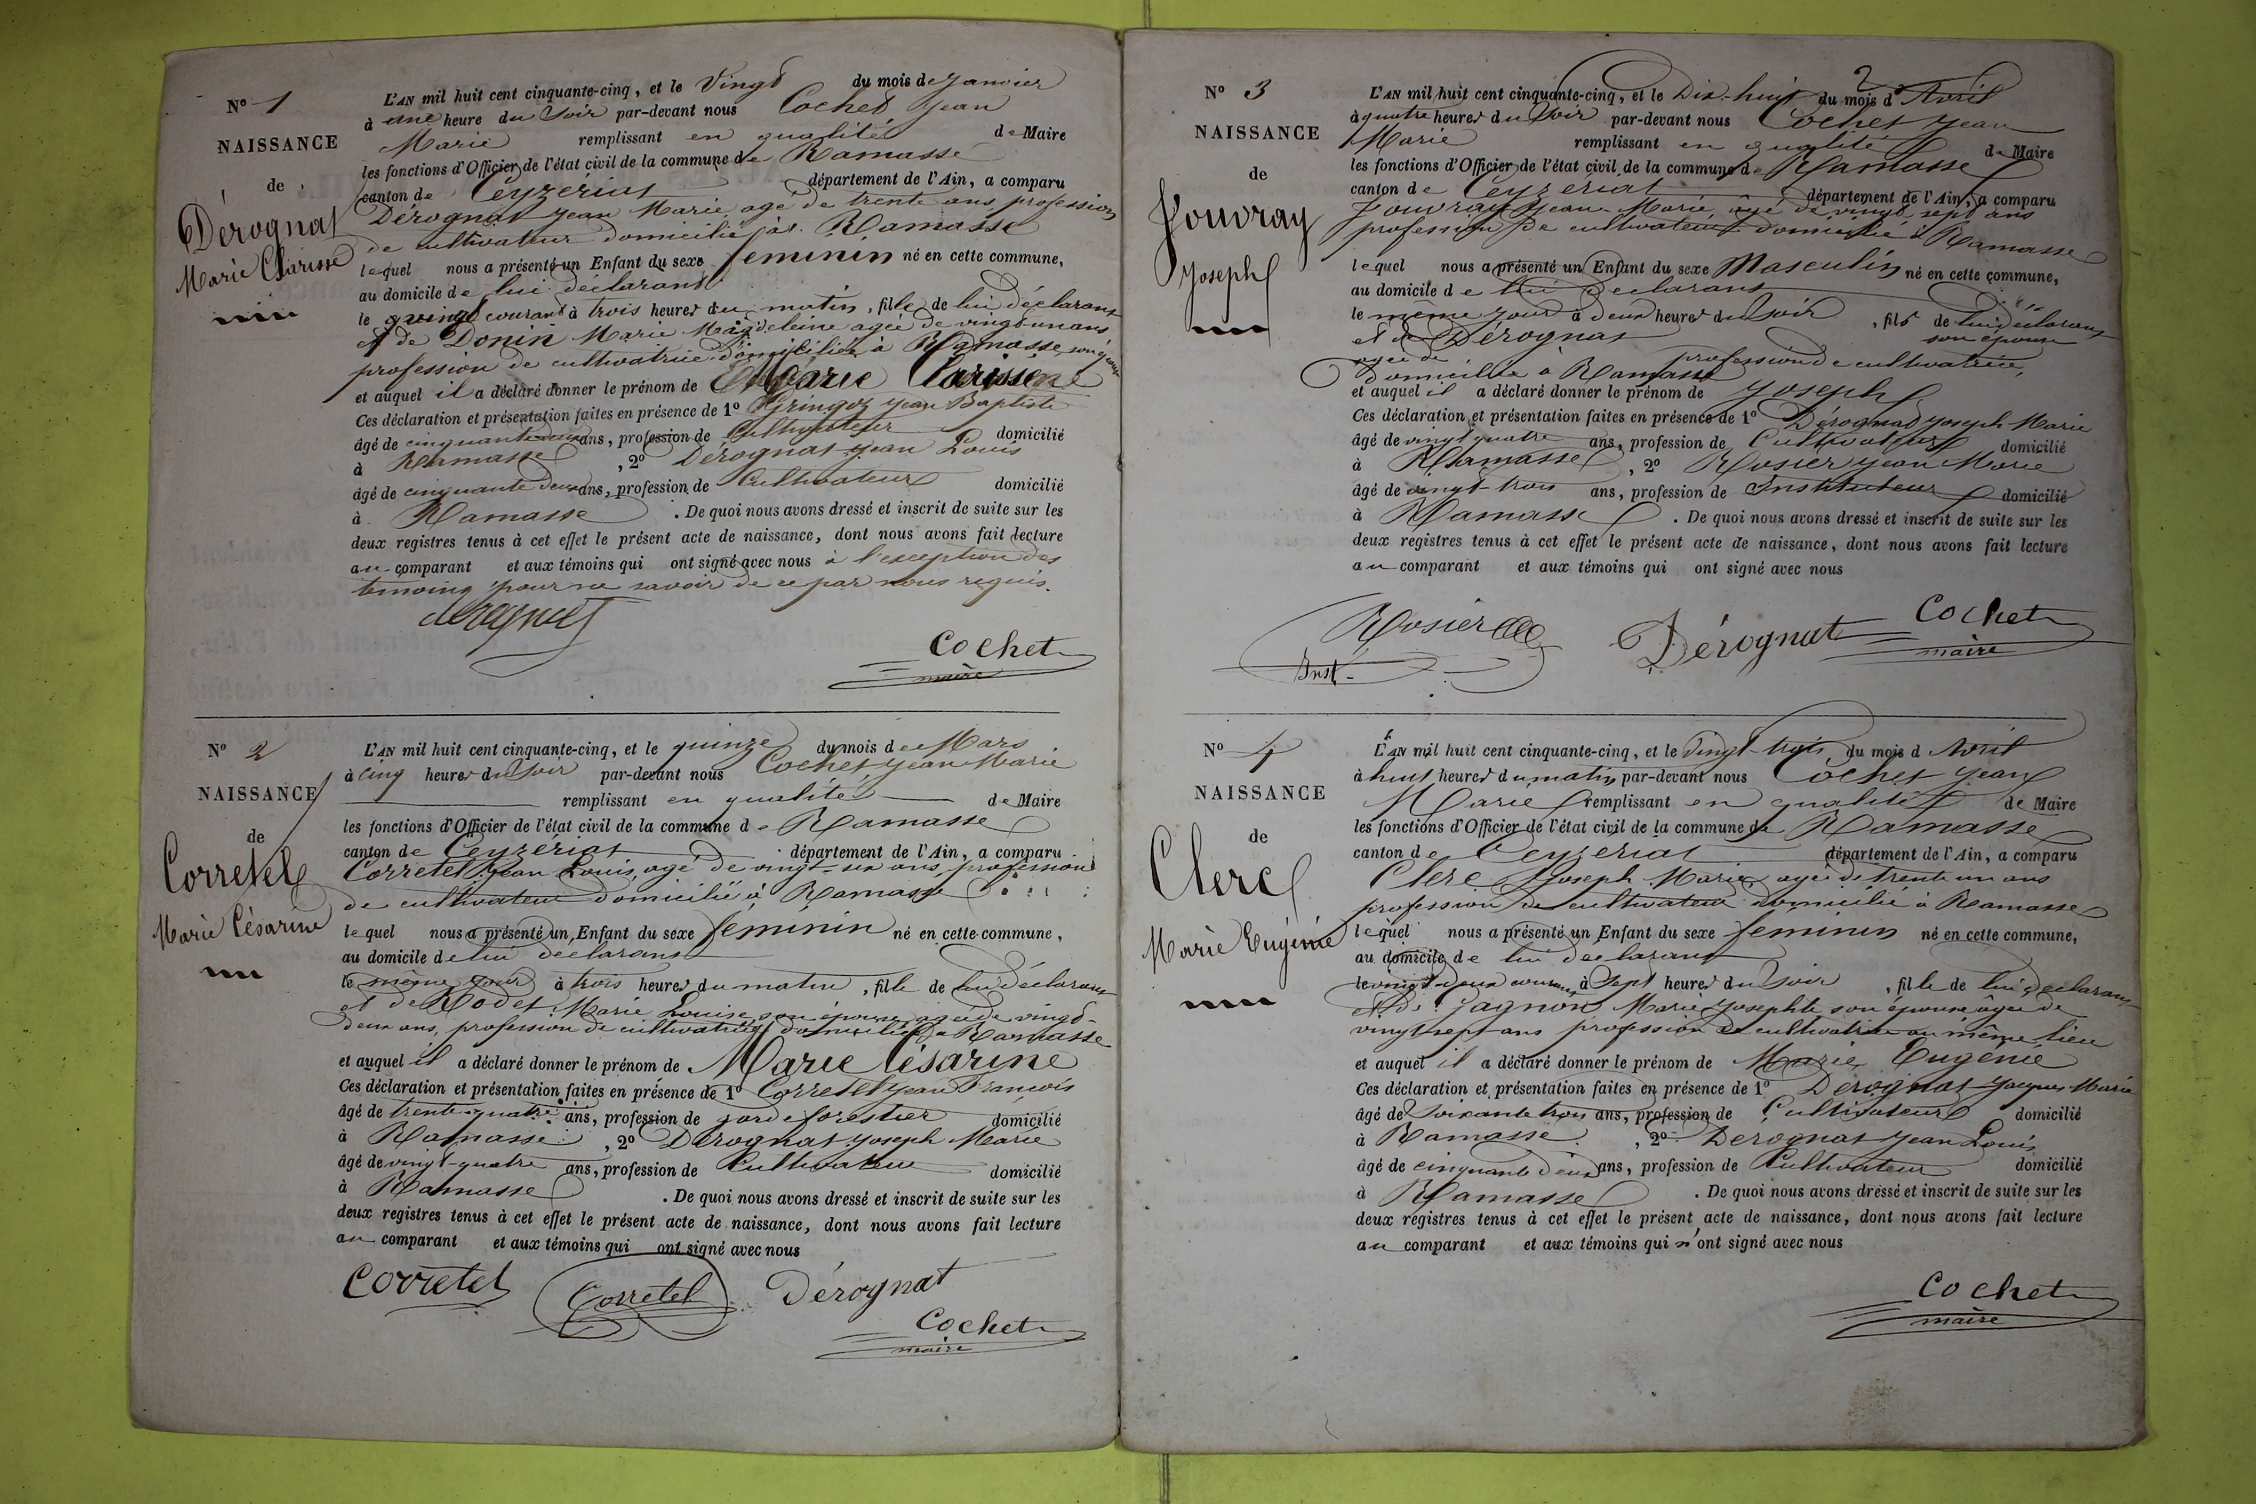 N° 1
NAISSANCE
de
Dérognat
Marie Clarisse
L'AN mil huit cent cinquante-cinq, et le Vingt du mois de Janvier
à une heure du Soir par-devant nous Cochet Jean
Marie remplissant en qualité de Maire
les fonctions d'Officier de l'état civil de la commune de Ramasse
canton de Ceyzeriat département de l'Ain, a comparu
Dérognat Jean Marie, agé de trente ans profession
de cultivateur domicilié à Ramasse
lequel nous a présenté un Enfant du sexe féminin né en cette commune,
au domicile de lui déclarant
le vingt courant à trois heures du matin, fille de lui déclarant
et de Donin Marie Magdeleine agée de vingt un ans
profession de cultivatrice domiciliée à Ramasse, son épouse
et auquel il a déclaré donner le prénom de Marie Clarisse
Ces déclaration et présentation faites en présence de 1° Gringoz Jean Baptiste
âgé de cinquante ans, profession de Cultivateur domicilié
à Ramasse, 2° Dérognat Jean Louis
âgé de cinquante deux ans, profession de Cultivateur domicilié
à Ramasse. De quoi nous avons dressé et inscrit de suite sur les
deux registres tenus à cet effet le présent acte de naissance, dont nous avons fait lecture
au comparant et aux témoins qui ont signé avec nous à l'exception des
témoins pour ne savoir de ce par nous requis.
derognat
Cochet
maire
N° 2
NAISSANCE
de
Corretel
Marie Césarine
L'AN mil huit cent cinquante-cinq, et le quinze du mois de Mars
à cinq heures du Soir par-devant nous Cochet Jean Marie
remplissant en qualité de Maire
les fonctions d'Officier de l'état civil de la commune de Ramasse
canton de Ceyzeriat département de l'Ain, a comparu
Corretel Jean Louis, agé de vingt-six ans, profession
de cultivateur domicilié à Ramasse
lequel nous a présenté un Enfant du sexe féminin né en cette commune,
au domicile de lui déclarant
le même jour à trois heures du matin, fille de lui déclarant
et de Rodet Marie Louise son épouse agée de vingt-
deux ans, profession de cultivatrice domiciliée à Ramasse
et auquel il a déclaré donner le prénom de Marie Césarine
Ces déclaration et présentation faites en présence de 1° Corretel Jean François
âgé de trente-quatre ans, profession de garde forestier domicilié
à Ramasse, 2° Dérognat Joseph Marie
âgé de vingt-quatre ans, profession de Cultivateur domicilié
à Ramasse. De quoi nous avons dressé et inscrit de suite sur les
deux registres tenus à cet effet le présent acte de naissance, dont nous avons fait lecture
au comparant et aux témoins qui ont signé avec nous
Corretel Corretel Dérognat
Cochet
maire
N° 3
NAISSANCE
de
Jouvray
Joseph
L'AN mil huit cent cinquante-cinq, et le Dix-huit du mois d'Avril
à quatre heures du Soir par-devant nous Cochet Jean
Marie remplissant en qualité de Maire
les fonctions d'Officier de l'état civil de la commune de Ramasse
canton de Ceyzeriat département de l'Ain, a comparu
Jouvray Jean-Marie, âgé de vingt-sept ans
profession de cultivateur domicilié à Ramasse
lequel nous a présenté un Enfant du sexe Masculin né en cette commune,
au domicile de lui déclarant
le même jour à deux heures du Soir, fils de lui déclarant
et de Dérognat son épouse
agée de profession de cultivatrice,
domiciliée à Ramasse
et auquel il a déclaré donner le prénom de Joseph
Ces déclaration et présentation faites en présence de 1° Dérognat Joseph Marie
âgé de vingt quatre ans, profession de Cultivateur domicilié
à Ramasse, 2° Rosier Jean Marie
âgé de vingt-trois ans, profession de Instituteur domicilié
à Ramasse. De quoi nous avons dressé et inscrit de suite sur les
deux registres tenus à cet effet le présent acte de naissance, dont nous avons fait lecture
au comparant et aux témoins qui ont signé avec nous
Rosier Dérognat Cochet
Inst. maire
N° 4
NAISSANCE
de
Clerc
Marie Eugénie
L'AN mil huit cent cinquante-cinq, et le Vingt-trois du mois d Avril
à huit heures du matin par-devant nous Cochet Jean
Marie remplissant en qualité de Maire
les fonctions d'Officier de l'état civil de la commune de Ramasse
canton de Ceyzeriat département de l'Ain, a comparu
Clerc Joseph Marie, agé de trente un ans
profession de cultivateur domicilié à Ramasse
lequel nous a présenté un Enfant du sexe féminin né en cette commune,
au domicile de lui déclarant
le vingt-deux courant à Sept heures du Soir, fille de lui déclarant
et de Gagnon Marie Josephte son épouse âgée de
vingt sept ans profession de cultivatrice au même lieu
et auquel il a déclaré donner le prénom de Marie Eugénie
Ces déclaration et présentation faites en présence de 1° Dérognat Jacques Marie
âgé de Soixante trois ans, profession de Cultivateur domicilié
à Ramasse, 2° Dérognat Jean Louis
âgé de cinquante deux ans, profession de Cultivateur domicilié
à Ramasse. De quoi nous avons dressé et inscrit de suite sur les
deux registres tenus à cet effet le présent acte de naissance, dont nous avons fait lecture
au comparant et aux témoins qui n'ont signé avec nous
Cochet
maire